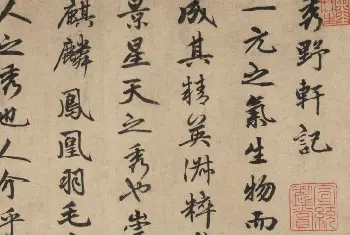 秀野軒記
一元之氣生物而
成其精英淋粹
景星天之秀也
麒麟鳳凰羽毛
人之秀也人介乎